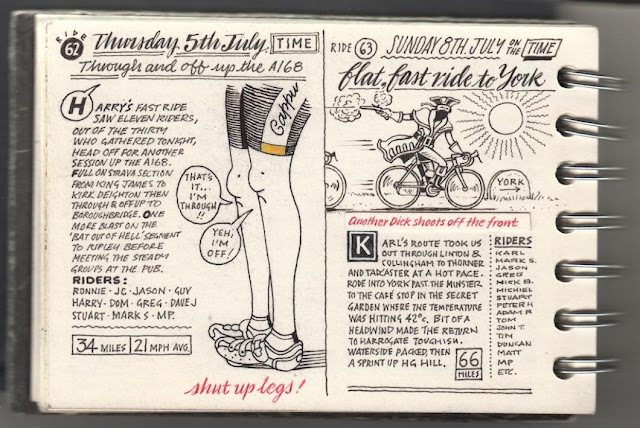 RIDE
62
Thursday. 5th July. TIME
Through and off up the A168
HARRY'S FAST RIDE
SAW ELEVEN RIDERS,
OUT OF THE THIRTY
WHO GATHERED TONIGHT,
HEAD OFF FOR ANOTHER
SESSION UP THE A168.
FULL ON STRAVA SECTION
FROM KING JAMES TO
KIRK DEIGHTON THEN
THROUGH & OFF UP TO
BOROUGHBRIDGE. ONE
MORE BLAST ON THE
'BAT OUT OF HELL' SEGMENT
TO RIPLEY BEFORE
MEETING THE STEADY
GROUPS AT THE PUB.
RIDERS:
RONNIE · JC · JASON · GUY
HARRY · DOM · GREG · DAVE J
STUART · MARK S · MP.
34 MILES 21 MPH AVG.
Gappur
THAT'S
IT...
I'M
THROUGH
!!
YEH,
I'M
OFF!
shut up legs!
RIDE 63 SUNDAY 8TH. JULY ON THE TIME
flat, fast ride to York
YORK
Another Dick shoots off the front
KARL'S ROUTE TOOK US
OUT THROUGH LINTON &
COLLINGHAM TO THORNER
AND TADCASTER AT A HOT PACE.
RODE INTO YORK PAST THE MINSTER
TO THE CAFÉ STOP IN THE SECRET
GARDEN WHERE THE TEMPERATURE
WAS HITTING 42°c. BIT OF A
HEADWIND MADE THE RETURN
TO HARROGATE TOUGHISH.
WATERSIDE PACKED, THEN
A SPRINT UP HG HILL.
66
MILES
RIDERS
KARL
MARK S.
JASON
GREG
NICK B.
MICHIEL
STUART
PETER H
ADAM P
TOM
JOHN T.
TIM
DUNCAN
MATT
MP
ETC.